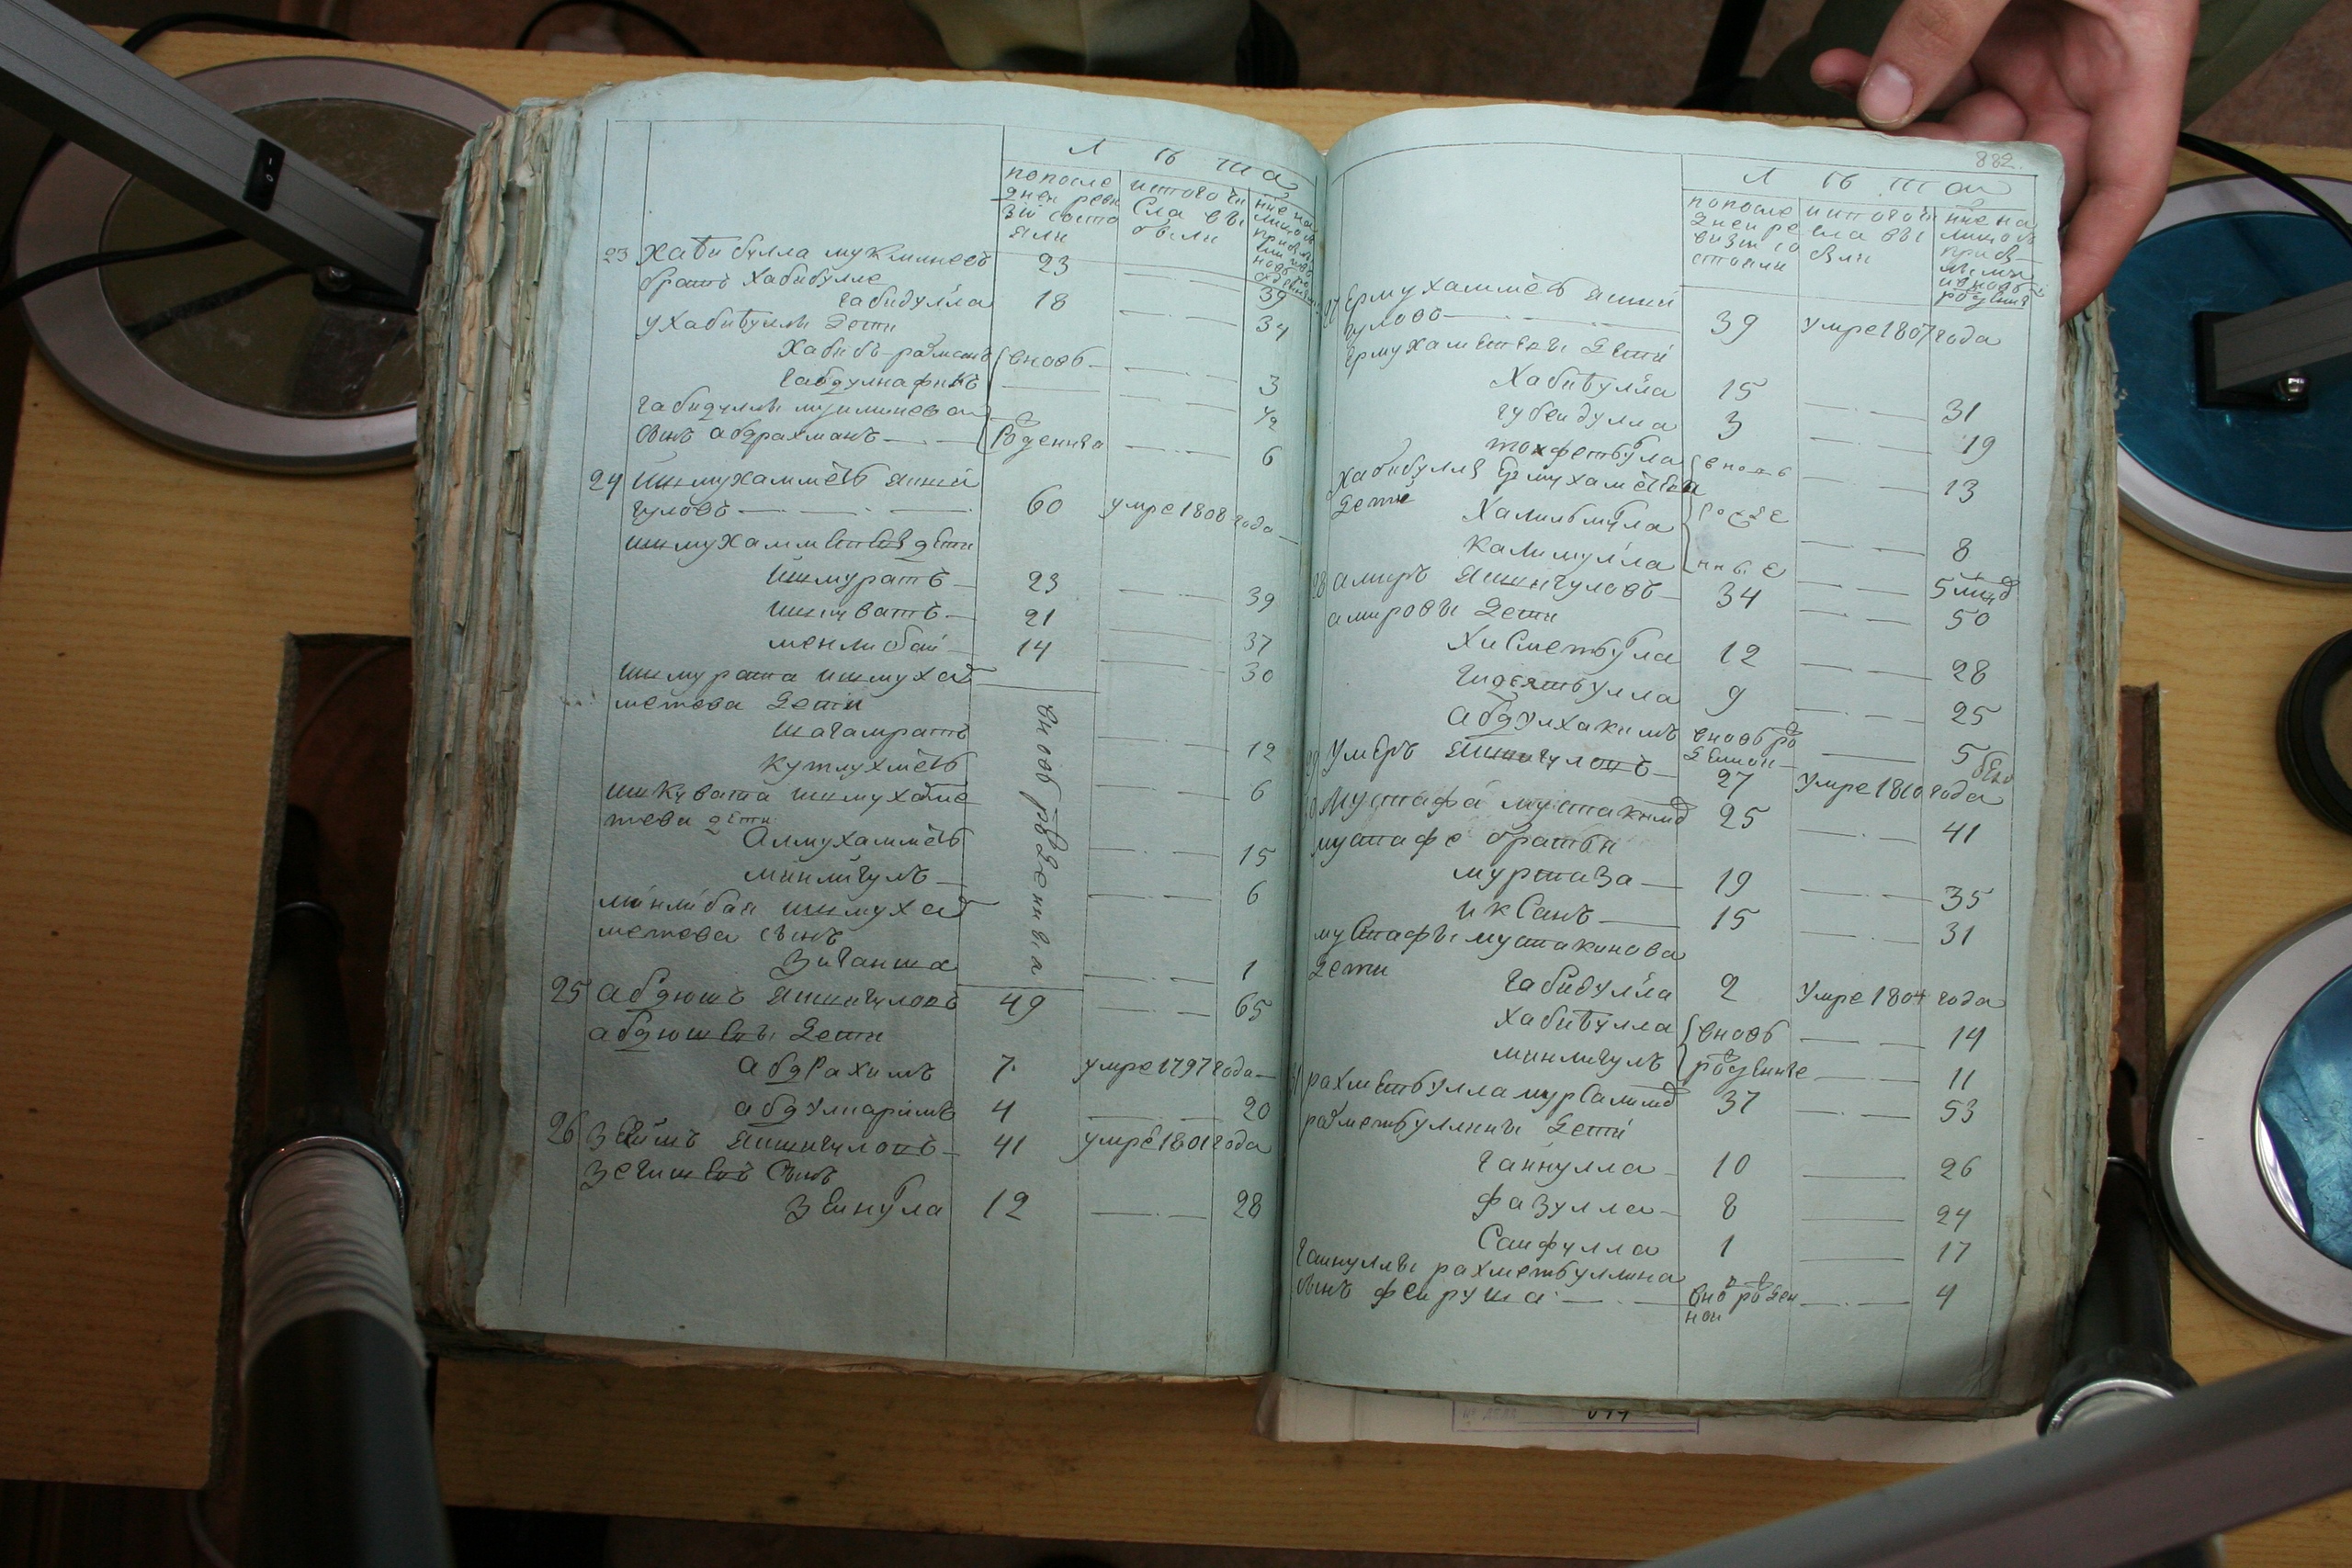 Л ѣ та
по после
дней реви
зiи состо
яли
ис того чи
сла вы
были
ныне на
лицо съ
23 Хабибулла мукминевъ 23 39
братъ Хабибулле
габидулла 18 34
у Хабибуллы дети
Хабибъ-рахметъ вновь 3
габдулнафикъ 1/2
габидуллы мукминева
сынъ абдрахманъ рожденныя 6
24 Ишмухамметь яшки
гуловъ 60 умре 1808 года
ишмухамметевы дети
ишмуратъ 23 39
ишкуватъ 21 37
менлибай 14 30
ишмурата ишмуха
метева дети
шагамратъ 12
кутлухметь 6
ишкувата ишмухаме
тева дети
Алмухамметь 15
минлигулъ 6
минлибая ишмуха
метева сынъ
Зиганша 1
вновь рожденныя
25 абдюшъ яшкигуловъ 49 65
абдюшевы дети
абдрахимъ 7 умре 1797 года
абдулкаримъ 4 20
26 яшкигуловъ 41 умре 1801 года
сынъ
Зейнула 12 28
882.
Л ѣ та
по после
дней ре
визiи со
стояли
ис того чи
сла вы
были
ныне на
лицо съ
Ермухамметь яшки
гуловъ 39 умре 1807 года
Ермухаметевы дети
Хабибулла 15 31
губейдулла 3 19
тохфетбула вновь 13
Хабибуллы Ермухаметева
дети
Халильмула рожде 8
калимулла нные 5 м
28 амиръ яшкигуловъ 34 50
амировы дети
Хисметбула 12 28
гидеятбулла 9 25
абдулхакимъ вновь ро 5
Умеръ яшкигуловъ 27 умре 1810 года
Мустафа мустакимо 25 41
мустафе братьи
муртаза 19 35
иксанъ 15 31
мустафы мустакимова
дети
габидулла 2 умре 1804 года
хабибулла вновь 14
минлигулъ рожденные 11
рахметбулла мурсалимо 37 53
рахметбуллины дети
гайнулла 10 26
фазулла 8 24
Сайфулла 1 17
гайнуллы рахметбуллина
сынъ фейруша вно рожден 4
ной